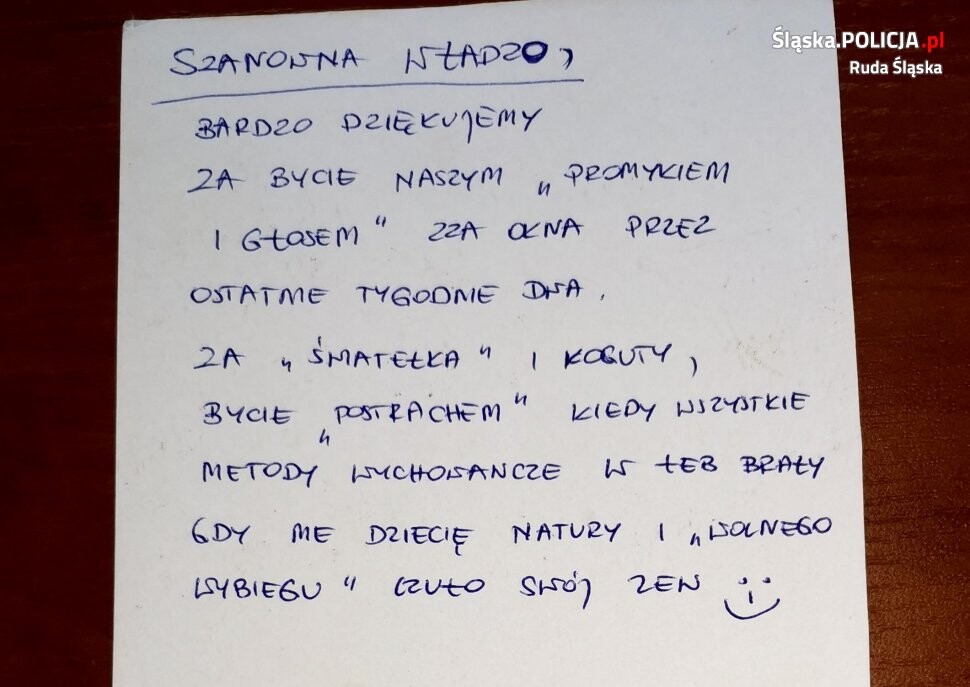 Śląska.POLICJA.pl
Ruda Śląska
SZANOWNA WŁADZO,
BARDZO DZIĘKUJEMY
ZA BYCIE NASZYM „PROMYKIEM
I GŁOSEM" ZZA OKNA PRZEZ
OSTATNIE TYGODNIE DWA.
ZA „ŚWIATEŁKA" I KOGUTY,
BYCIE „POSTRACHEM" KIEDY WSZYSTKIE
METODY WYCHOWAWCZE W ŁEB BRAŁY
GDY ME DZIECIĘ NATURY I „WOLNEGO
WYBIEGU" CZUŁO SWÓJ ZEW